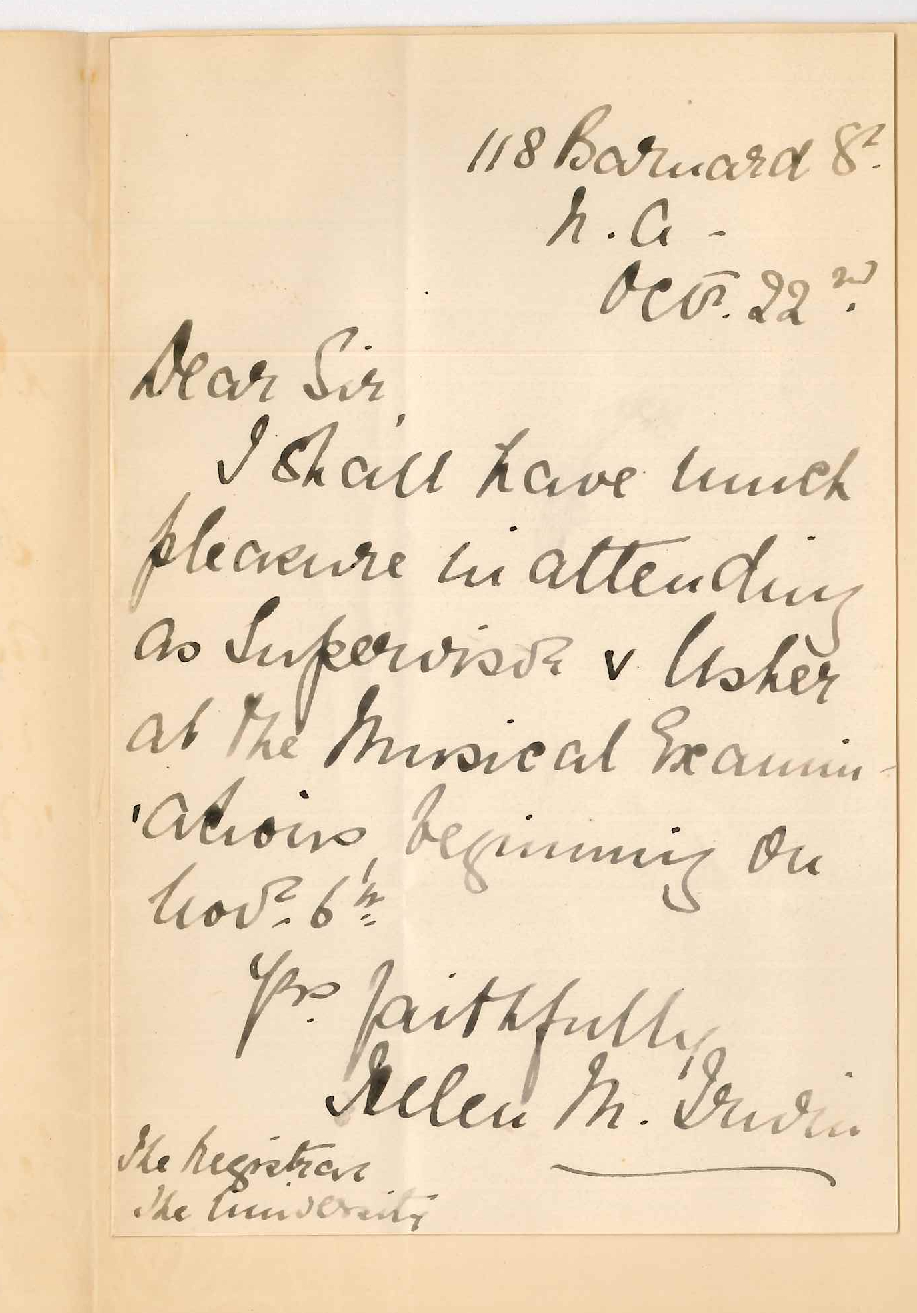 118 Barnard St.
N. A -
Oct. 22nd.
Dear Sir,
I shall have much
pleasure in attending
as Supervisor & Usher
at the Musical Examin-
'ations, beginning on
Novr. 6th
Yrs. faithfully,
Helen M. Irwin
The Registrar
The University